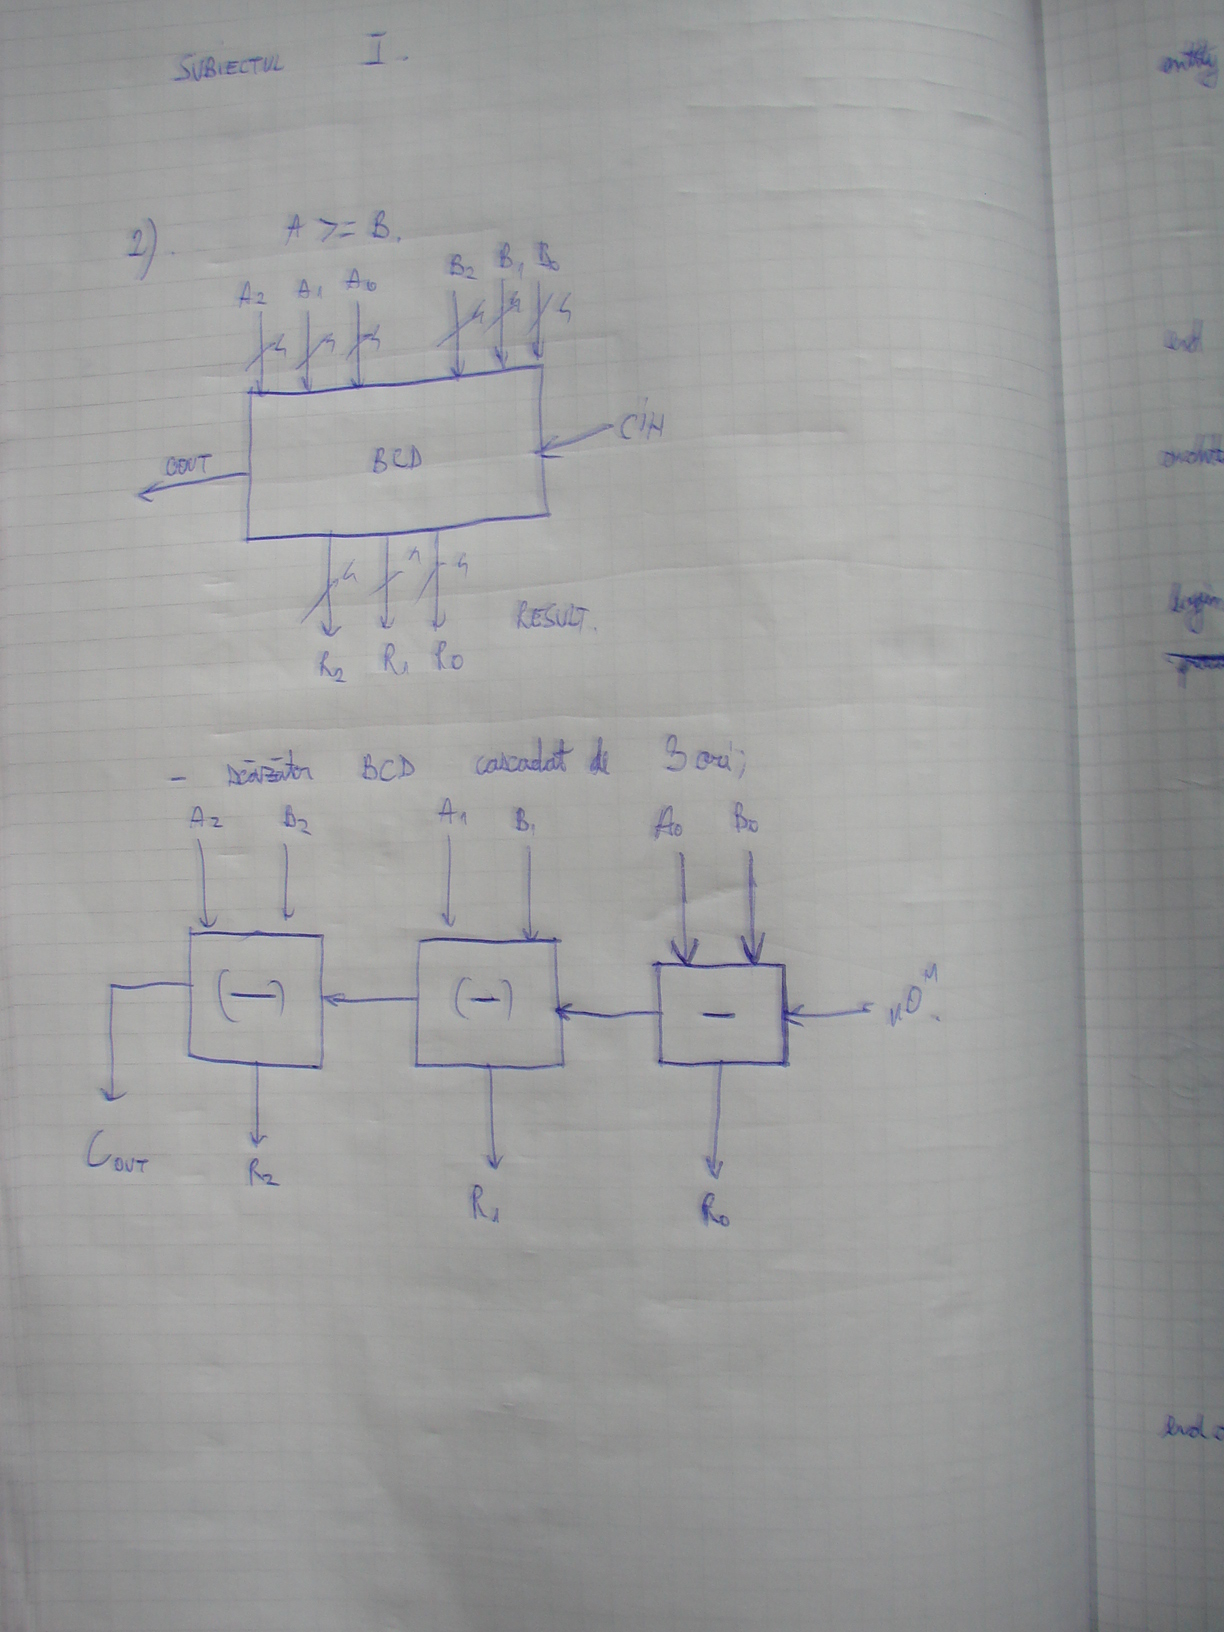 SUBIECTUL I.
2). A >= B.
A2 A1 A0 B2 B1 B0
4 4 4 4 4 4
CIN
BCD
COUT
4 4 4
RESULT.
R2 R1 R0
- Scăzător BCD cascadat de 3 ori;
A2 B2 A1 B1 A0 B0
(—) (—) — „0"
COUT
R2 R1 R0
entity
end
begin
end